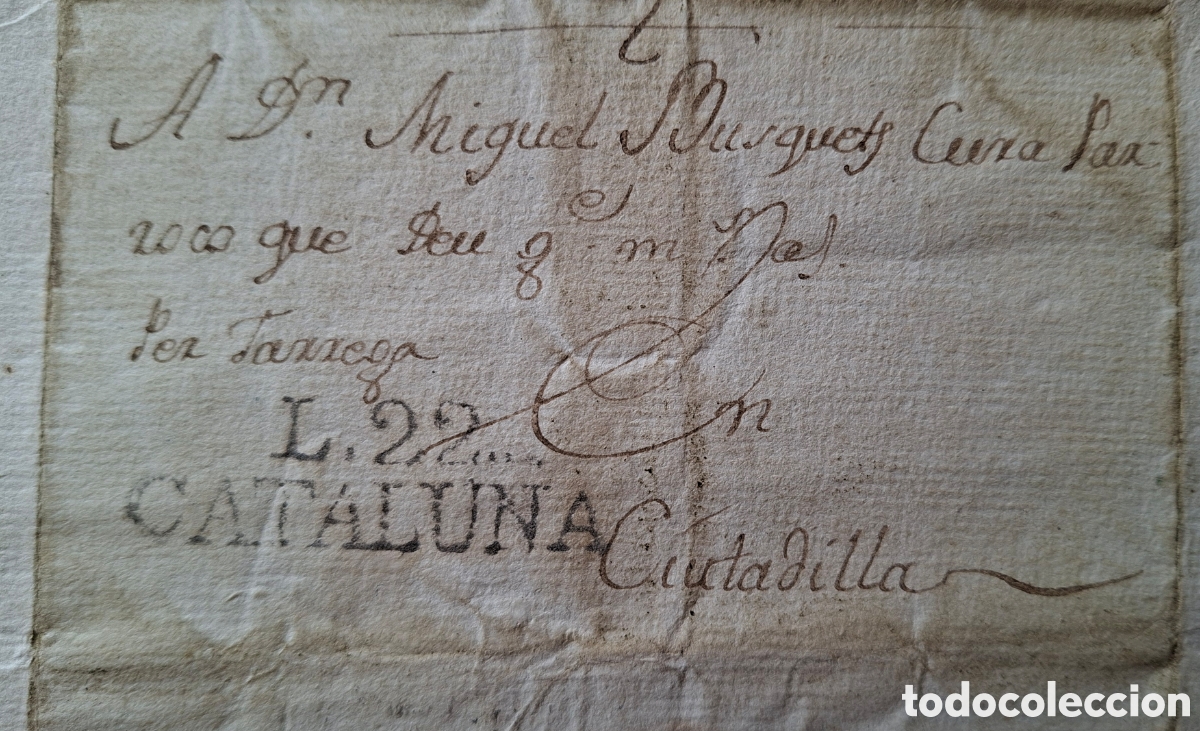 A Dn. Miguel Busquets Cura Par-
roco que Deu ge. m as.
Per Tarrega
En
L.22...
CATALUNA
Ciutadilla
todocoleccion